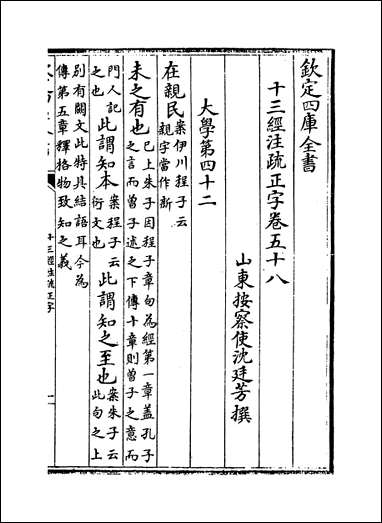 欽定四庫全書
十三經注疏正字卷五十八
山東按察使沈廷芳撰
大學第四十二
在親民案伊川程子云親字當作新
未之有也已上朱子因程子章句為經第一章蓋孔子之言而曾子述之下傳十章則曾子之意而
門人記之也此謂知本案程子云衍文也此謂知之至也案朱子云此句之上
別有闕文此特具結語耳今為傳第五章釋格物致知之義
十三經注疏正字
一